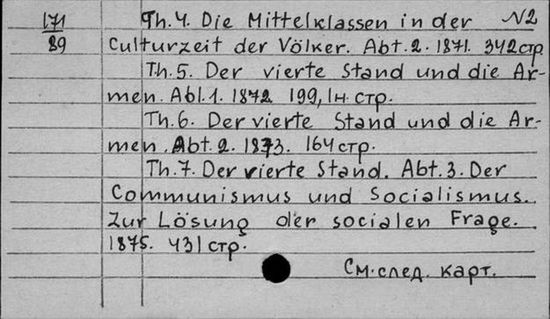 171 Th.4. Die Mittelklassen in der N2
89 Culturzeit der Völker. Abt.2. 1871. 342 стр
Th.5. Der vierte Stand und die Ar-
men. Abl.1. 1872 199, 1н. стр.
Th.6. Der vierte Stand und die Ar-
men. Abt.2. 1873. 164 стр.
Th.7. Der vierte Stand. Abt.3. Der
Communismus und Socialismus.
Zur Lösung der socialen Frage.
1875. 431 стр.
См. след. карт.